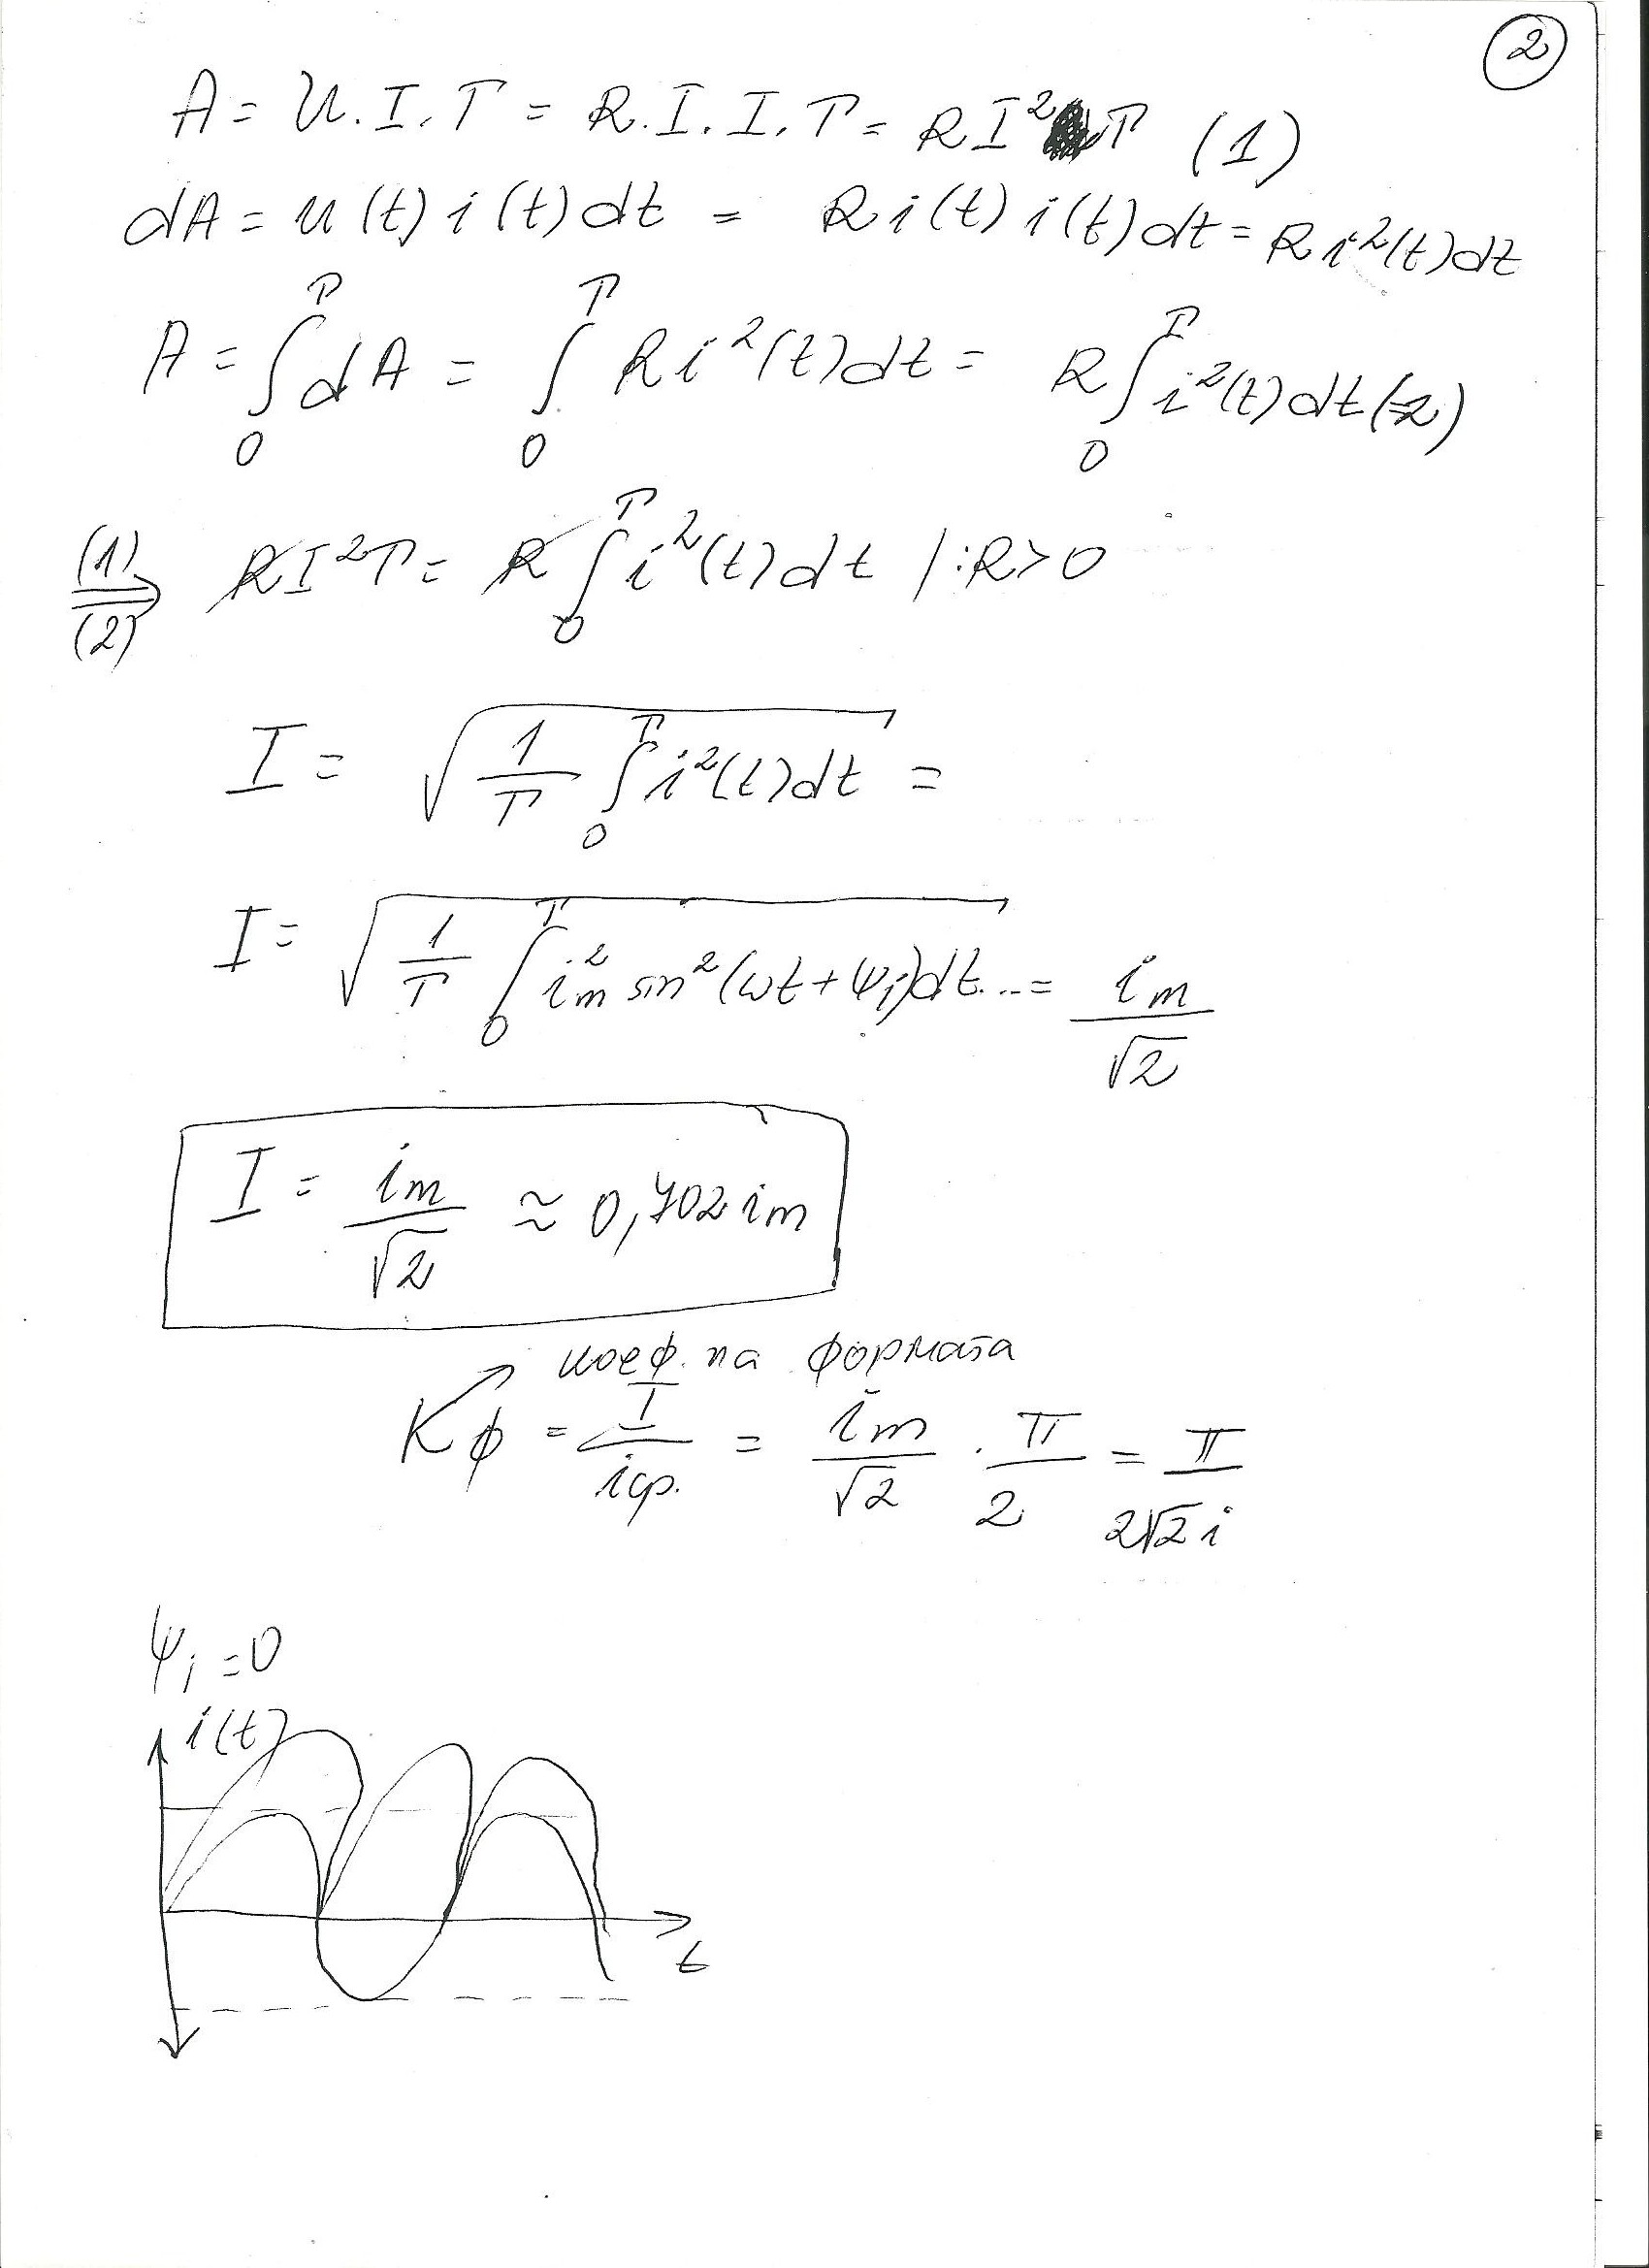 2
A = U.I.T = R.I.I.T = RI²T (1)
dA = u(t) i(t) dt = R i(t) i(t) dt = R i²(t) dt
A = ∫₀ᵀ dA = ∫₀ᵀ R i²(t) dt = R ∫₀ᵀ i²(t) dt (2)
(1) ⇒ (2) RI²T = R ∫₀ᵀ i²(t) dt /:R>0
I = √(1/T ∫₀ᵀ i²(t) dt) =
I = √(1/T ∫₀ᵀ iₘ² sin²(ωt + ψᵢ) dt) ... = iₘ/√2
I = iₘ/√2 ≈ 0,702 iₘ
коеф. на формата
Kф = I/iср. = iₘ/√2 . π/2 = π/2√2 i
ψᵢ = 0
i(t)
t